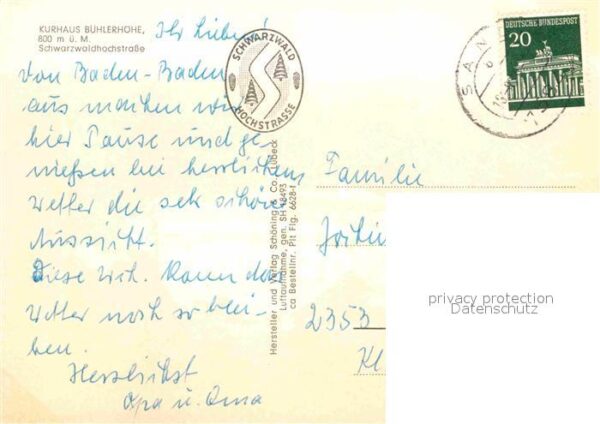 KURHAUS BÜHLERHÖHE,
800 m ü. M.
Schwarzwaldhochstraße
Ihr Lieben!
Von Baden-Baden
aus machen wir
hier Pause und ge-
nießen bei herrlichem
Wetter die sehr schöne
Aussicht.
Diese Wch. kann das
Wetter noch so blei-
ben.
Herzlichst
Opa u. Oma
SCHWARZWALD
HOCHSTRASSE
Hersteller und Verlag Schöning & Co., Lübeck
Luftaufnahme, gen. SH 18493
ca Bestellnr. Plt Flg. 6628-1
DEUTSCHE BUNDESPOST
20
Familie
2353
Kl
privacy protection
Datenschutz